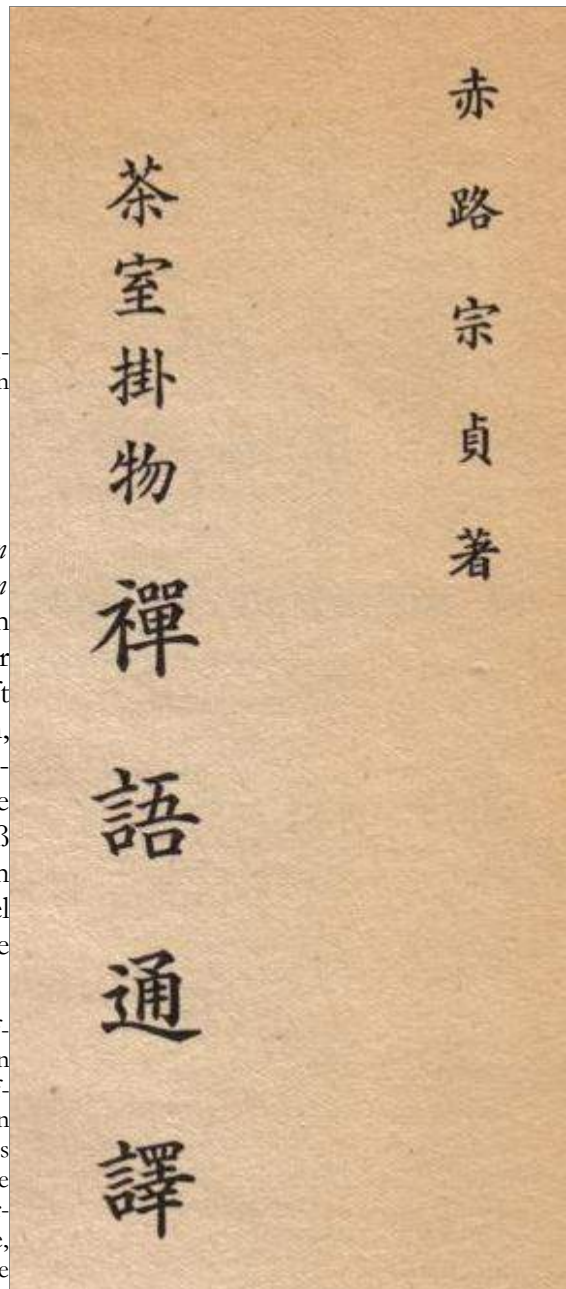 赤路宗貞著
茶室掛物 禪語通譯